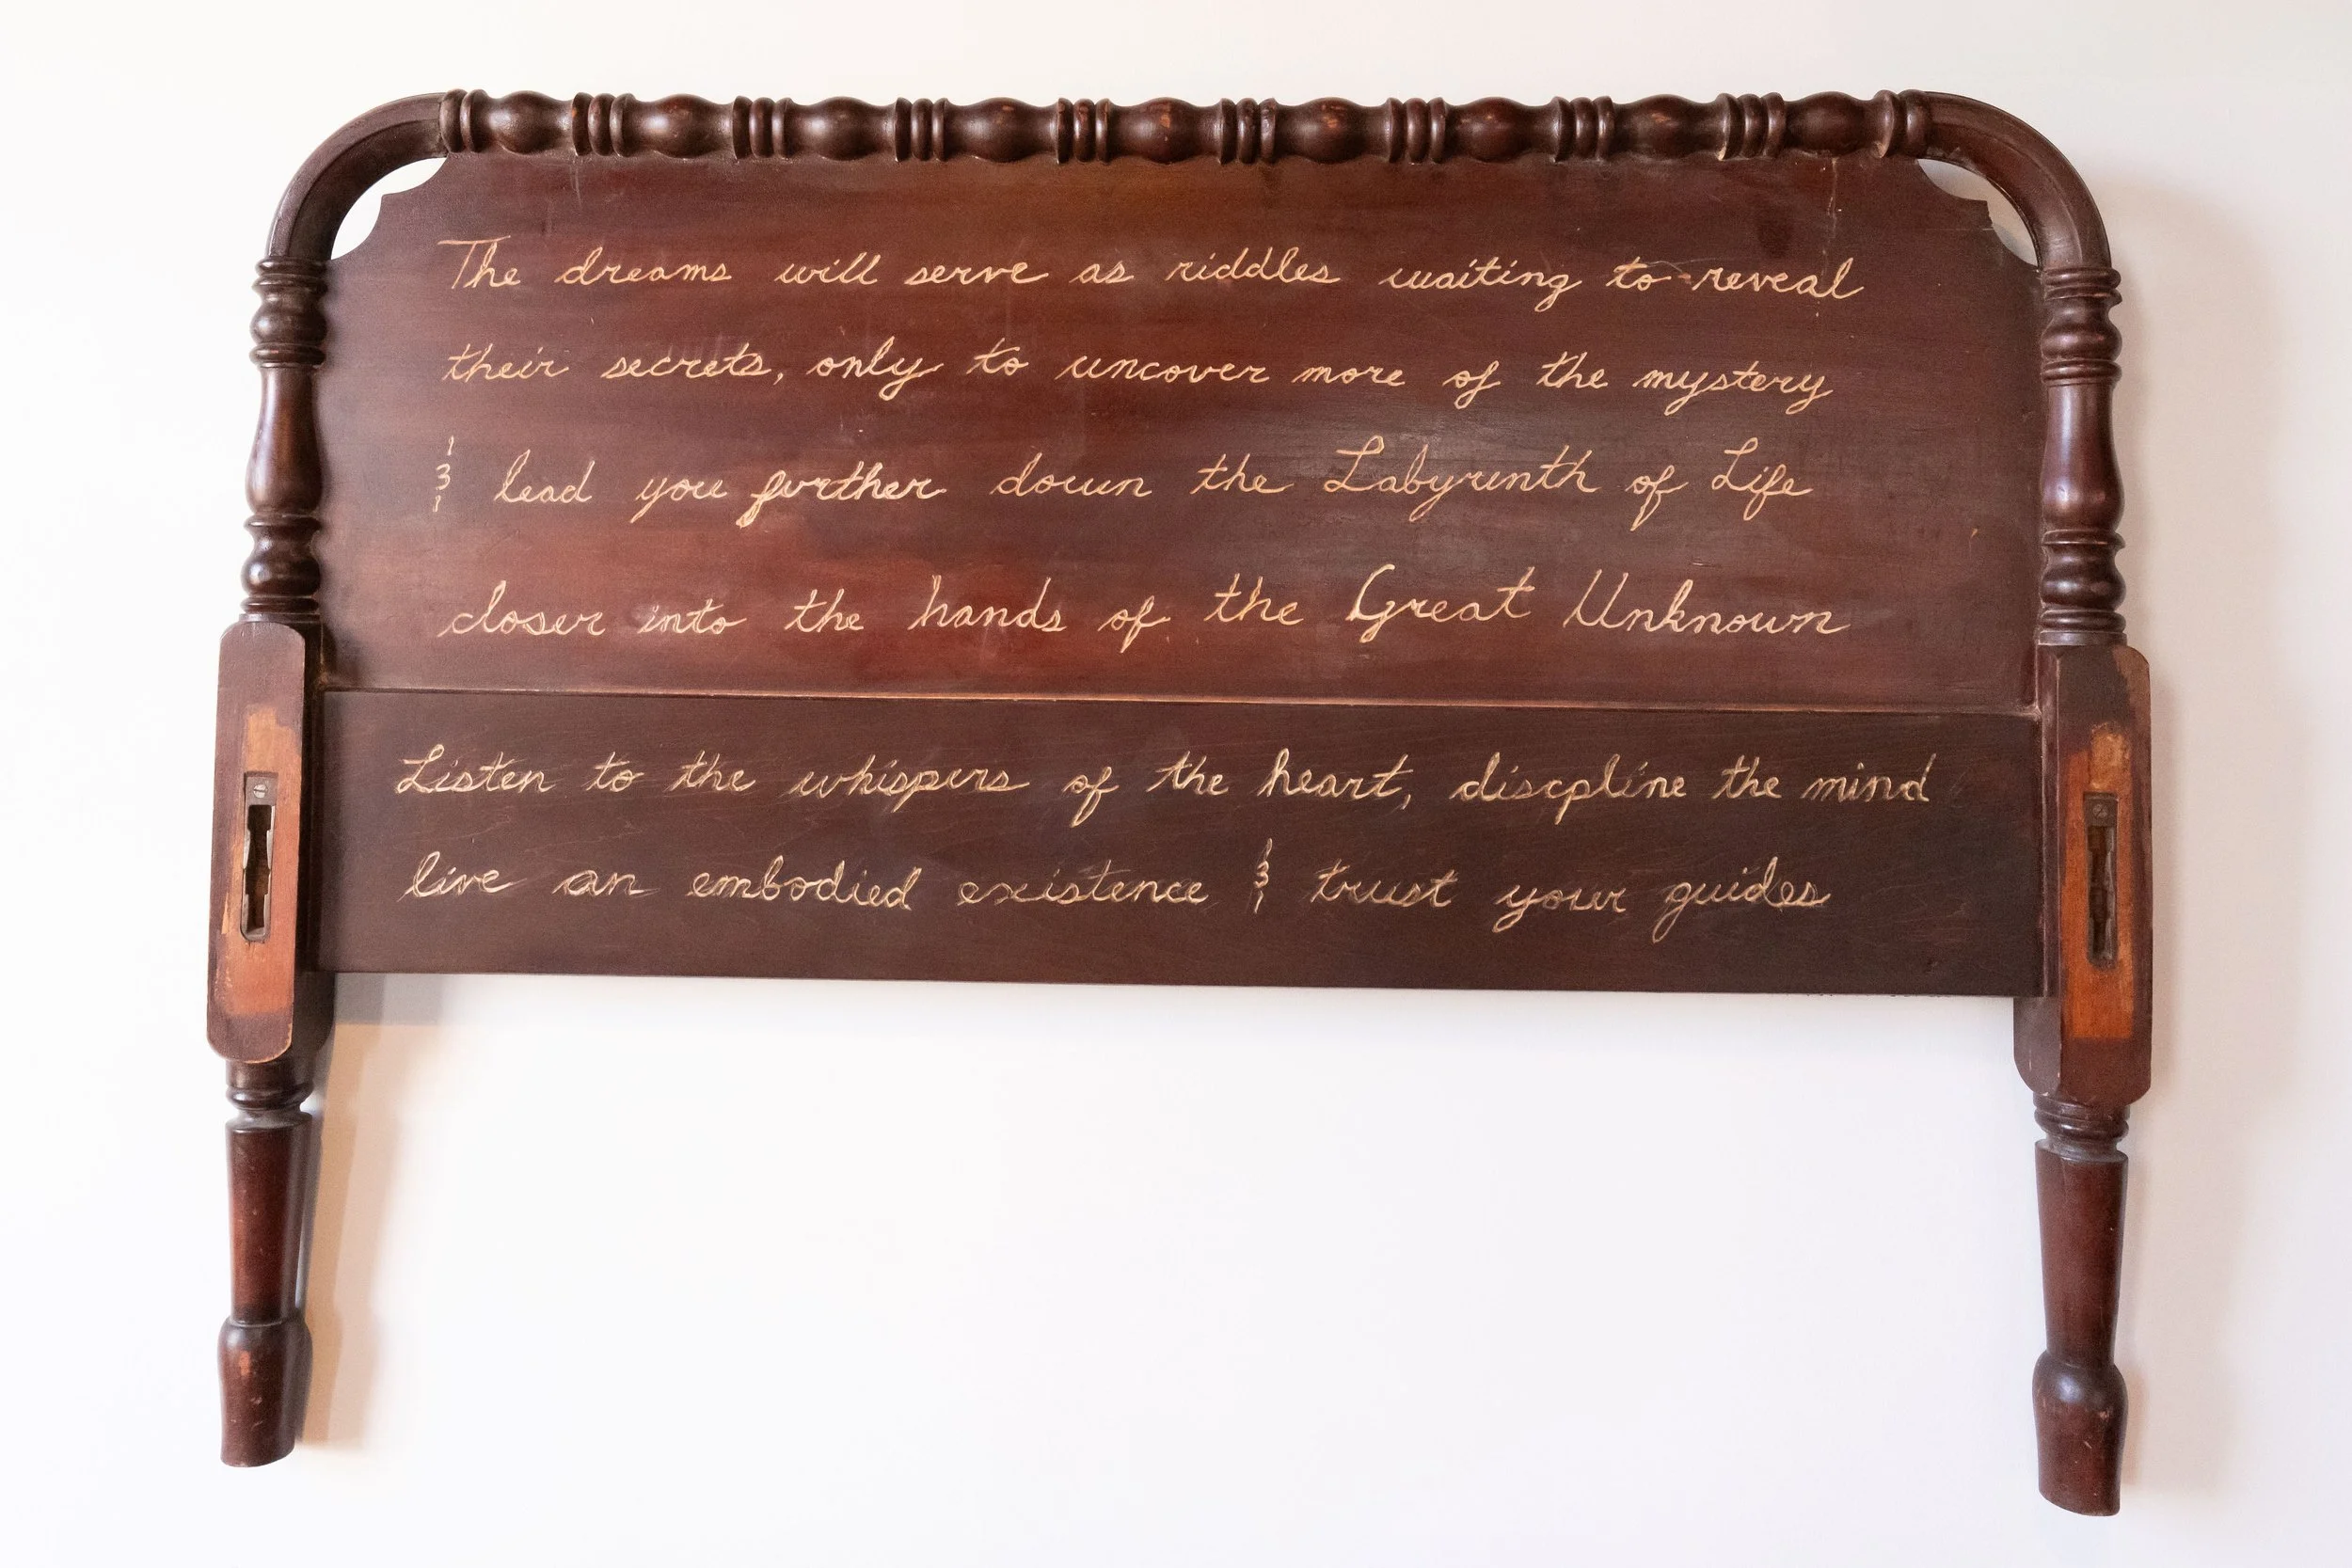 The dreams will serve as riddles waiting to reveal
their secrets, only to uncover more of the mystery
& lead you further down the Labyrinth of Life
closer into the hands of the Great Unknown
Listen to the whispers of the heart, discpline the mind
live an embodied existence & trust your guides